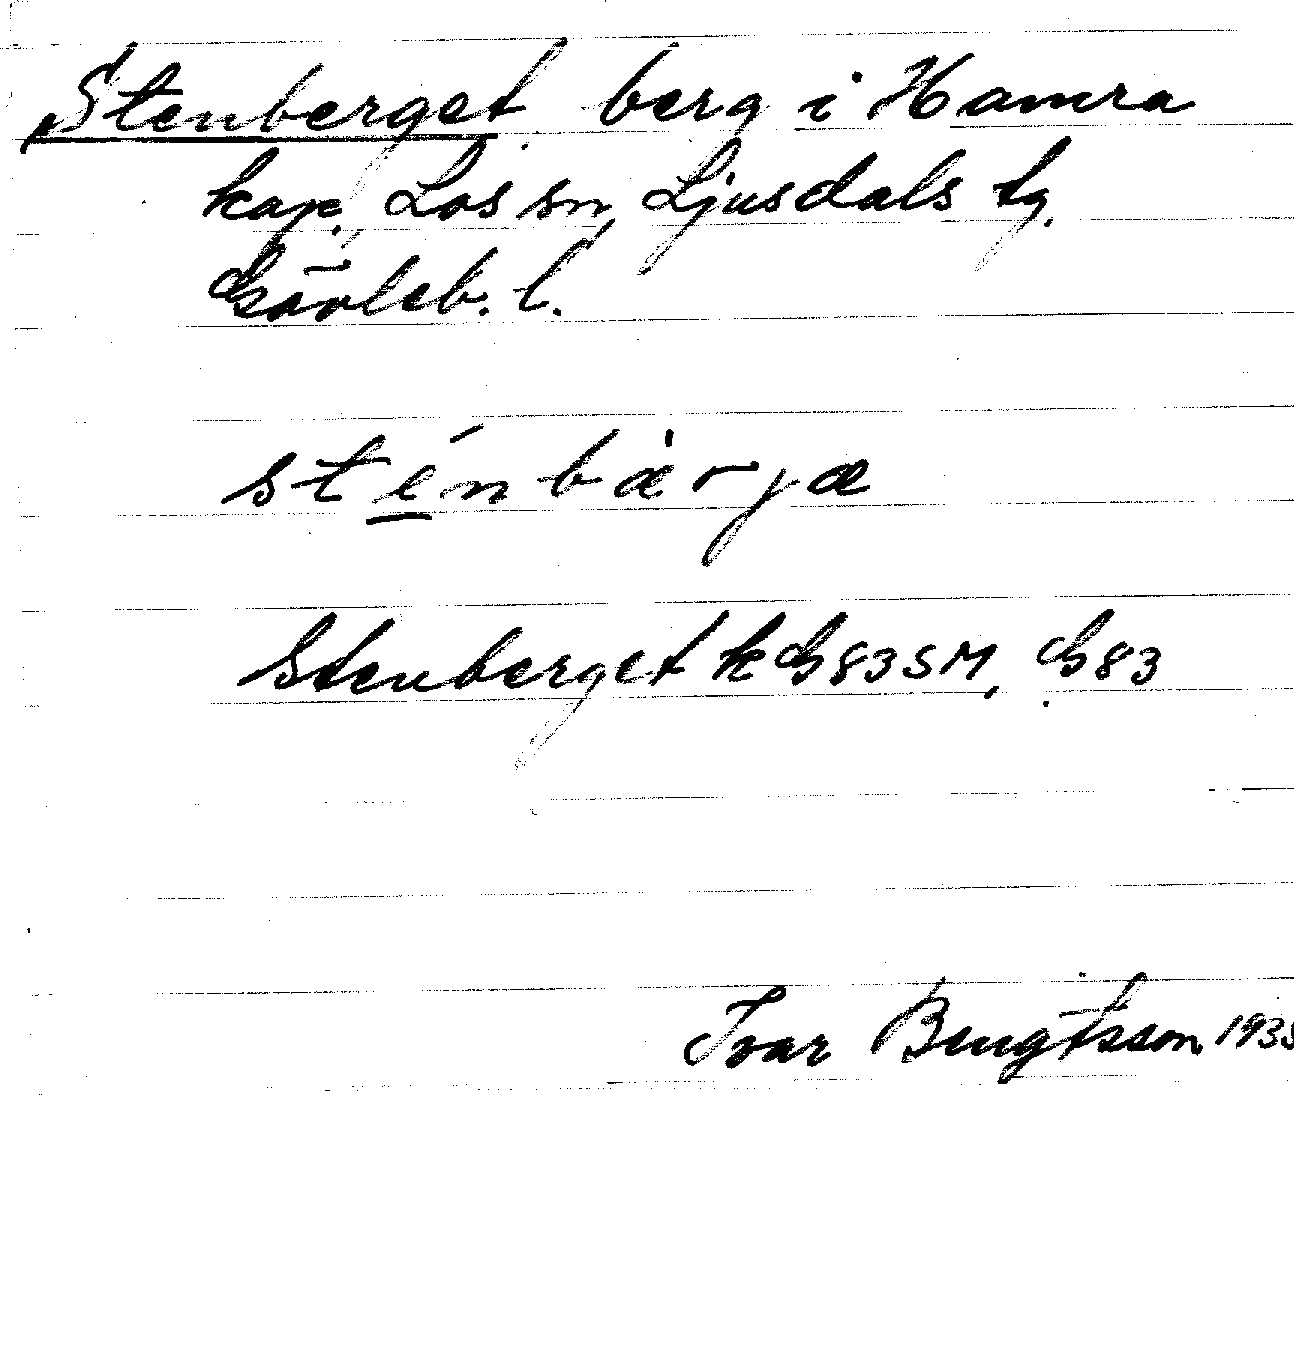 Stenberget berg i Hamra
kap., Los sn, Ljusdals tg.
Gävleb. l.
sténbæ̀rjæ
Stenberget k G83SM, G83
Ivar Bengtsson 1935